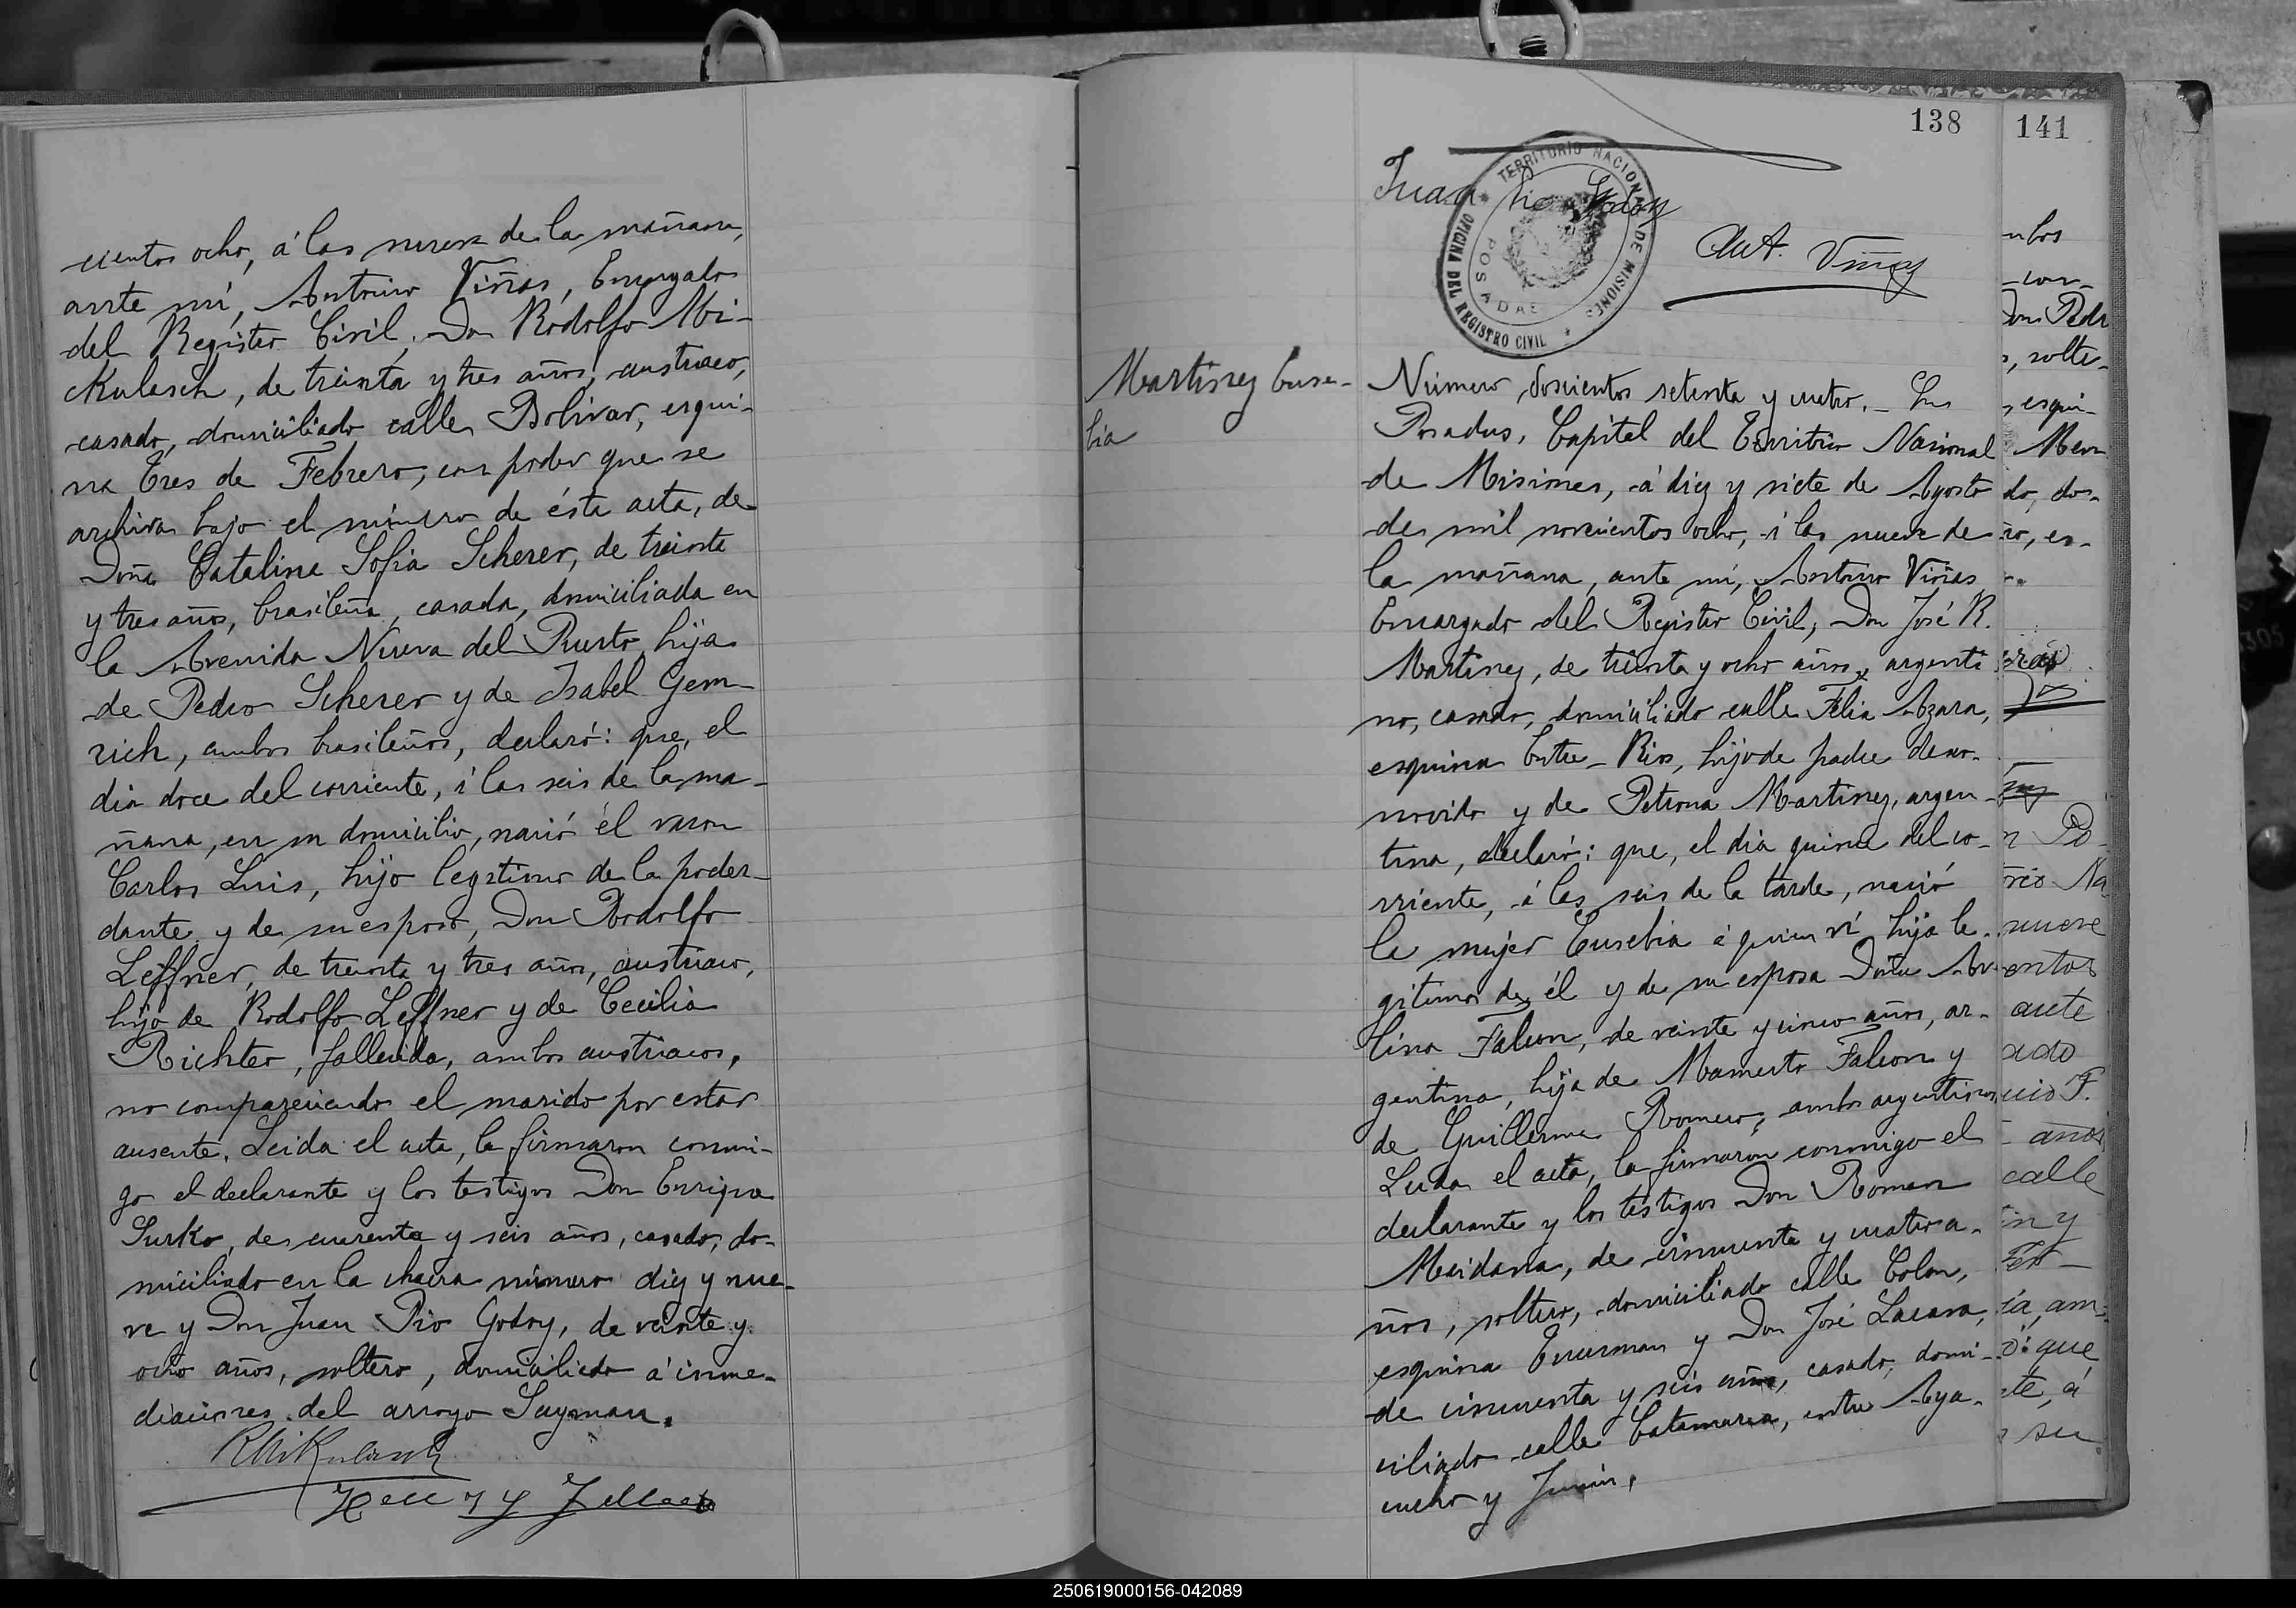 cientos ocho, á las nueve de la mañana,
ante mí, Antonio Viñas, Encargado
del Registro Civil, Don Rodolfo Mi-
Kulasch, de treinta y tres años, austriaco,
casado, domiciliado calle Bolivar, esqui-
na Tres de Febrero, con poder que se
archiva bajo el número de ésta acta, de
Doña Catalina Sofia Scherer, de treinta
y tres años, brasileña, casada, domiciliada en
la Avenida Nueva del Puerto, hija
de Pedro Scherer y de Isabel Gem
rich, ambos brasileños, declaró: que, el
dia doce del corriente, á las seis de la ma-
ñana, en su domicilio, nació el varon
Carlos Luis, hijo legítimo de la poder-
dante y de su esposo, Don Rodolfo
Leffner, de treinta y tres años, austriaco,
hijo de Rodolfo Leffner y de Cecilia
Richter, fallecida, ambos austriacos,
no compareciendo el marido por estar
ausente. Leida el acta, la firmaron conmi-
go el declarante y los testigos Don Enrique
Surko, de cuarenta y seis años, casado, do-
miciliado en la chacra número diez y nue-
ve y Don Juan Pio Godoy, de veinte y
ocho años, soltero, domiciliado á inme-
diaciones del arroyo Sayman.
RMiKulasch
138
141
Juan Pio Godoy
TERRITORIO NACIONAL DE MISIONES
OFICINA DEL REGISTRO CIVIL
POSADAS
Ant. Viñas
Martinez Euse-
bia
Número doscientos setenta y cuatro. - En
Posadas, Capital del Territorio Nacional
de Misiones, á diez y siete de Agosto
de mil novecientos ocho, á las nueve de
la mañana, ante mí, Antonio Viñas
Encargado del Registro Civil, Don José R.
Martinez, de treinta y ocho años, argenti
no, casado, domiciliado calle Felix Azara,
esquina Entre-Rios, hijo de padre desco-
nocido y de Petrona Martinez, argen-
tina, declaró: que, el dia quince del co-
rriente, á las seis de la tarde, nació
la mujer Eusebia á quien ví hija le-
gitima de él y de su esposa Doña Ave
lina Falcon, de veinte y cinco años, ar-
gentina, hija de Mamerto Falcon y
de Guillerma Romero, ambos argentinos
Leida el acta, la firmaron conmigo el
declarante y los testigos Don Roman
Maidana, de cincuenta y cuatro a-
ños, soltero, domiciliado calle Colon,
esquina Tucuman y Don José Lacava,
de cincuenta y seis años, casado, domi-
ciliado calle Catamarca, entre Aya-
cucho y Junin.
don Pedr
, solte-
, esqui-
nueve
ante
años
calle
in y
ia, am-
ó: que
te, á
su
250619000156-042089